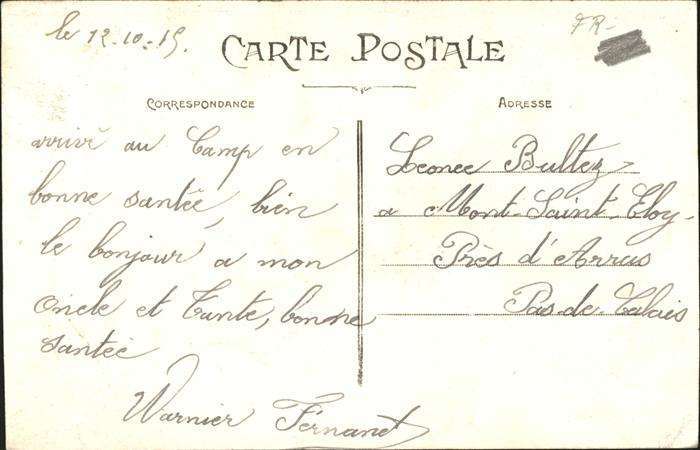 le 12-10-19.
FR-
CARTE POSTALE
CORRESPONDANCE
arrivé au Camp en
bonne santée, bien
le bonjour a mon
oncle et Tante, bonne
santée
Warnier Fernand
ADRESSE
Leonce Bultez
a Mont-Saint-Eloy-
Près d'Arras
Pas-de-Calais